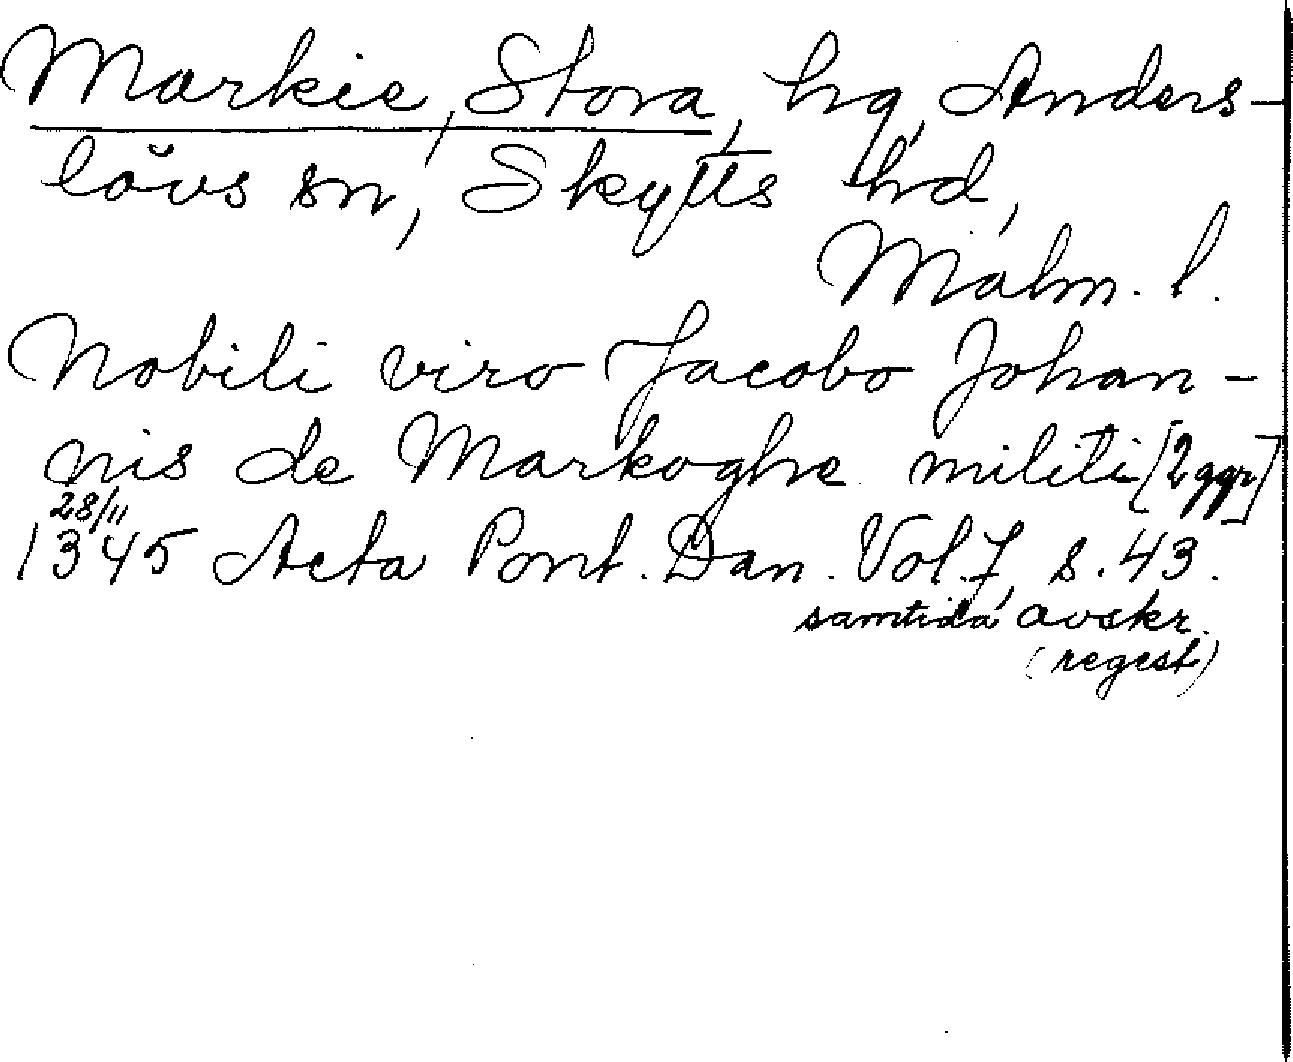 Markie, Stora, hg, Anders-
lövs sn, Skytts hd,
Malm. l.
Nobili viro Jacobo Johan-
nis de Markoghe militi [2 ggr]
28/11
1345 Acta Pont. Dan. Vol. 7, s. 43.
samtida avskr.
(regest)